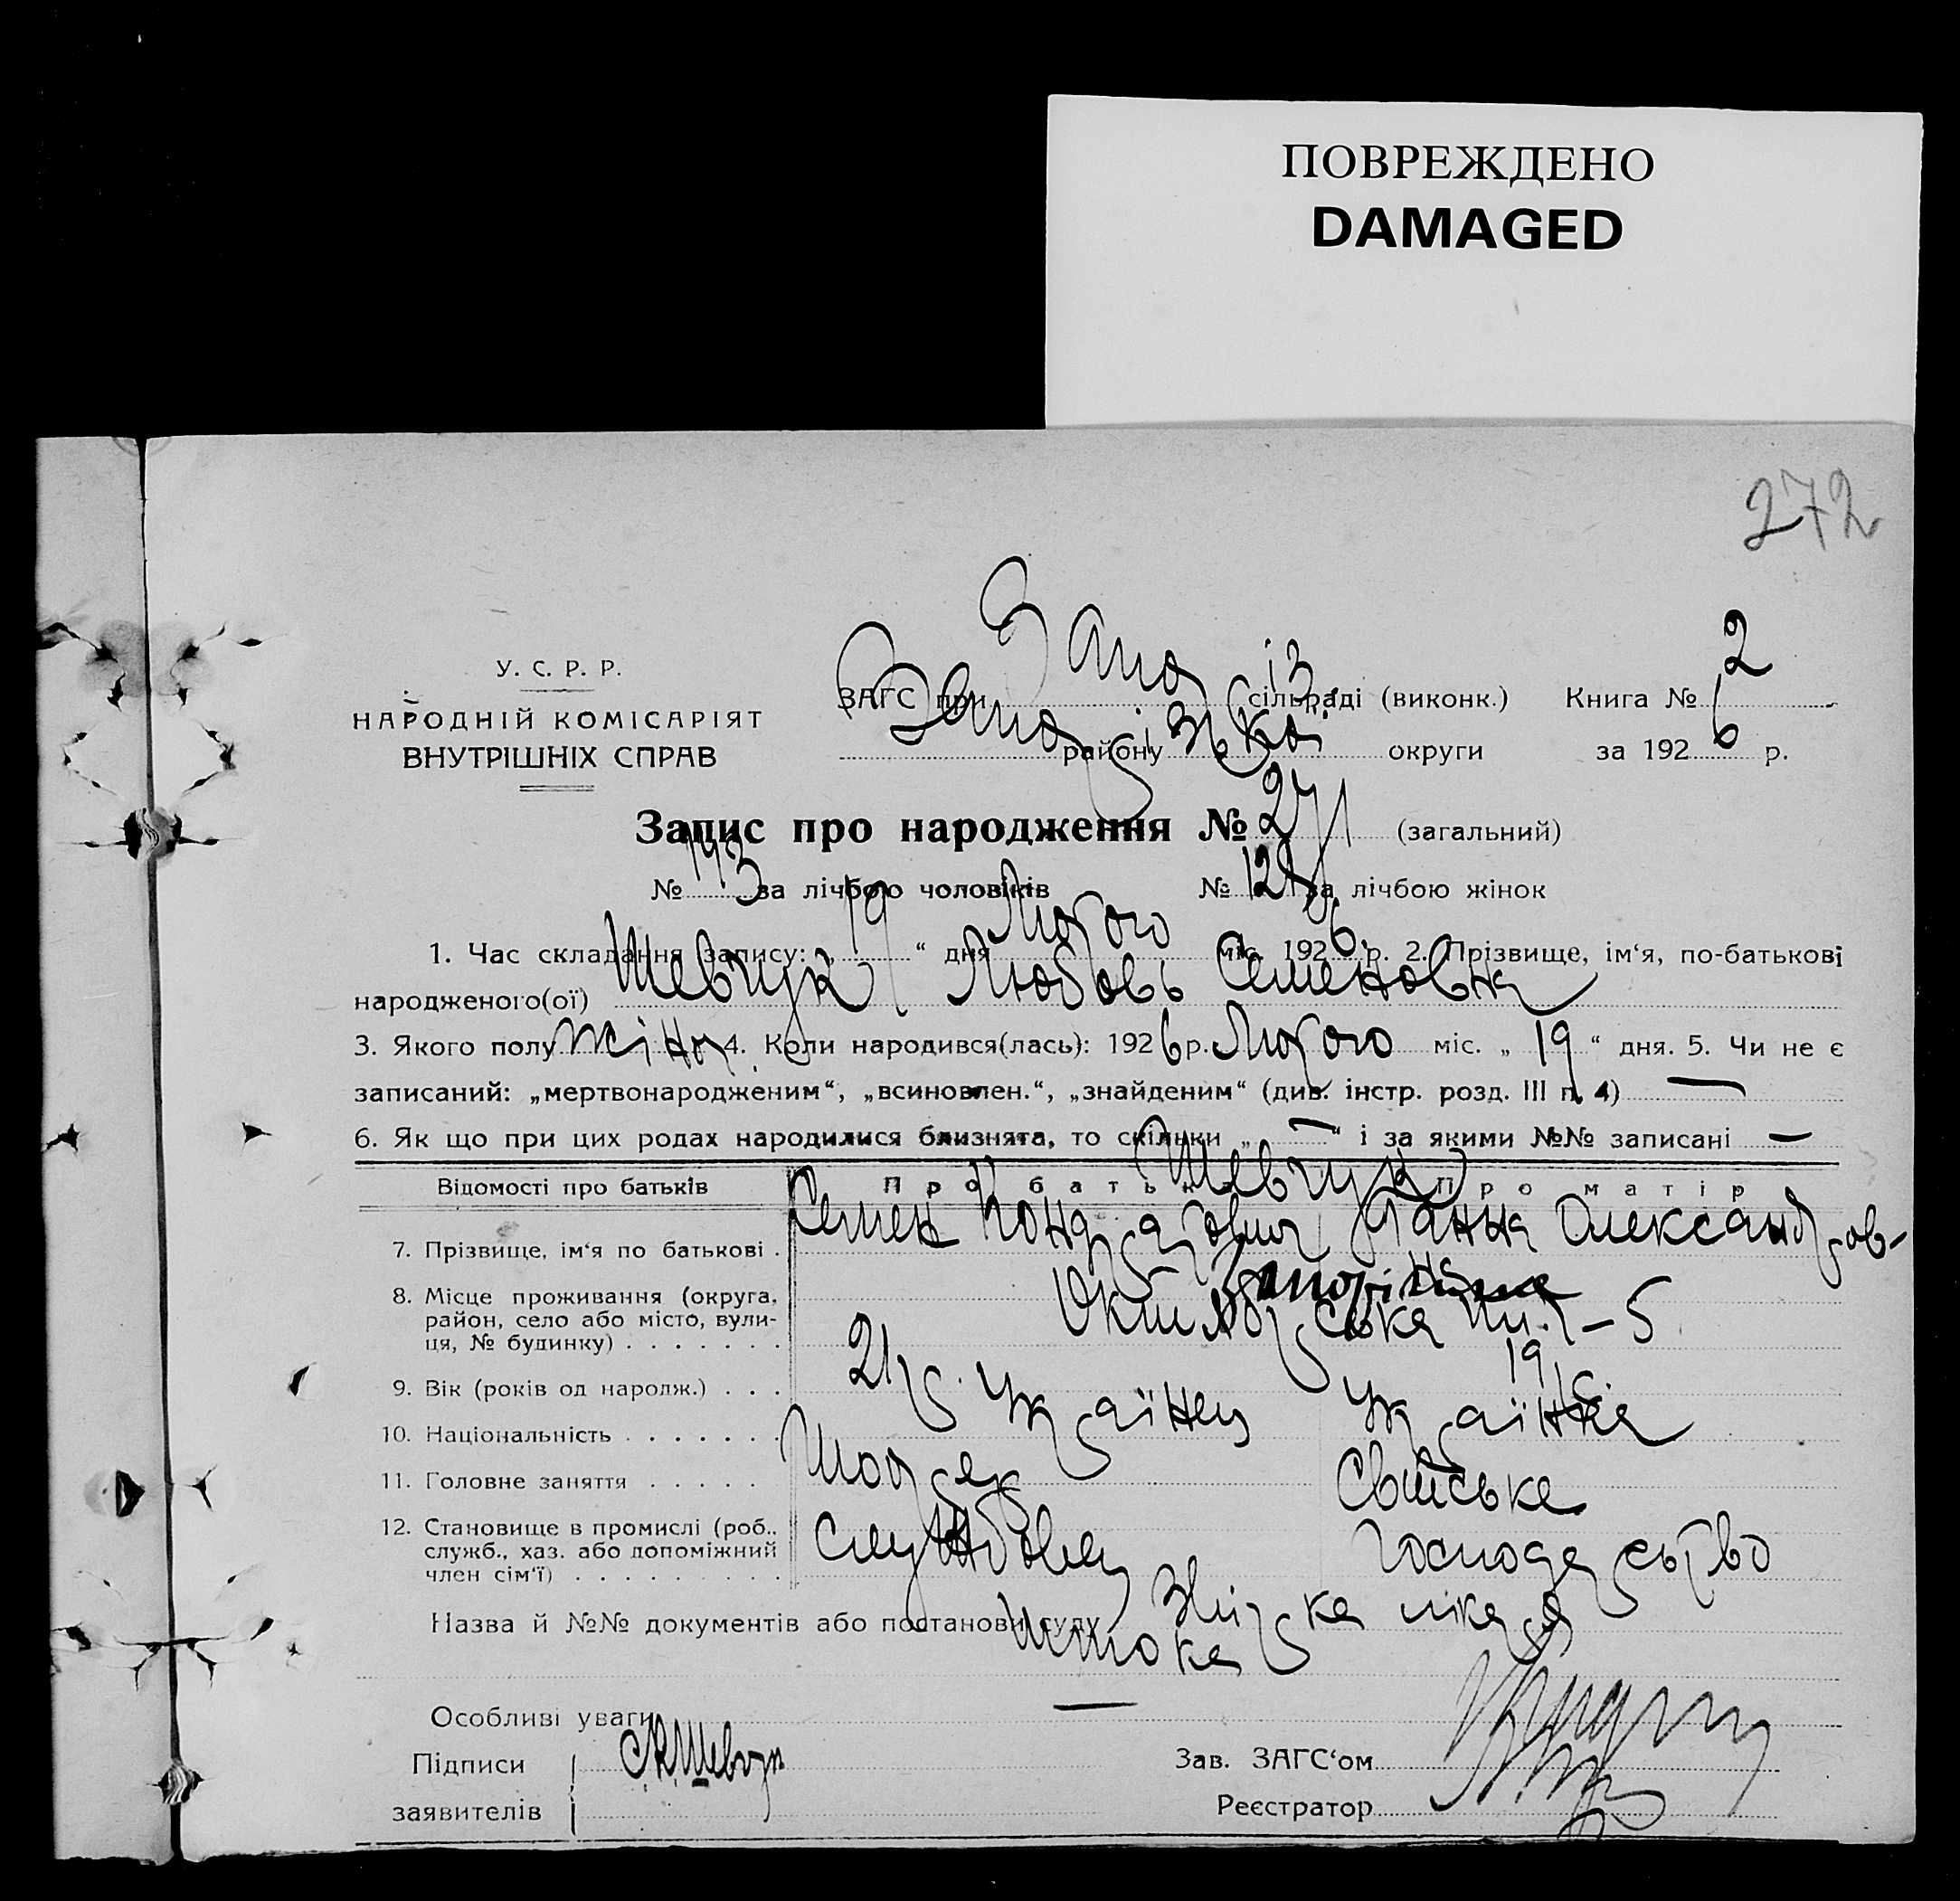 ПОВРЕЖДЕНО
DAMAGED
272
У. С. Р. Р.
НАРОДНІЙ КОМІСАРІЯТ
ВНУТРІШНІХ СПРАВ
ЗАГС при сільраді (виконк.) Книга № 2
району округи за 1926 р.
Запис про народження № 271 (загальний)
№ 143 за лічбою чоловіків № 128 за лічбою жінок
1. Час складання запису: „ 19 “ дня Лютого міс. 1926 р. 2. Прізвище, ім‘я, по-батькові
народженого(ої) Шевчук Любовь Семеновна
3. Якого полу жіноч. 4. Коли народився(лась): 1926 р. Лютого міс. „ 19 “ дня. 5. Чи не є
записаний: „мертвонародженим“, „всиновлен.“, „знайденим“ (див. інстр. розд. III п. 4) —
6. Як що при цих родах народилися близнята, то скільки „ — “ і за якими №№ записані —
Відомості про батьків Про батька Про матір
Шевчук
7. Прізвище, ім‘я по батькові . Семен Кондратович Ганна Олександров-
на
8. Місце проживання (округа,
район, село або місто, вули-
ця, № будинку) . . . . . . .
9. Вік (років од народж.) . . . 21 р. 19 р.
10. Національність . . . . . . . Українец Українка
11. Головне заняття . . . . . Свійське
12. Становище в промислі (роб.. службовец господарство
служб., хаз. або допоміжний
член сім‘ї) . . . . . . . . .
Назва й №№ документів або постанови суду
Особливі уваги —
Підписи Шевчук Зав. ЗАГС‘ом
заявителів Реєстратор